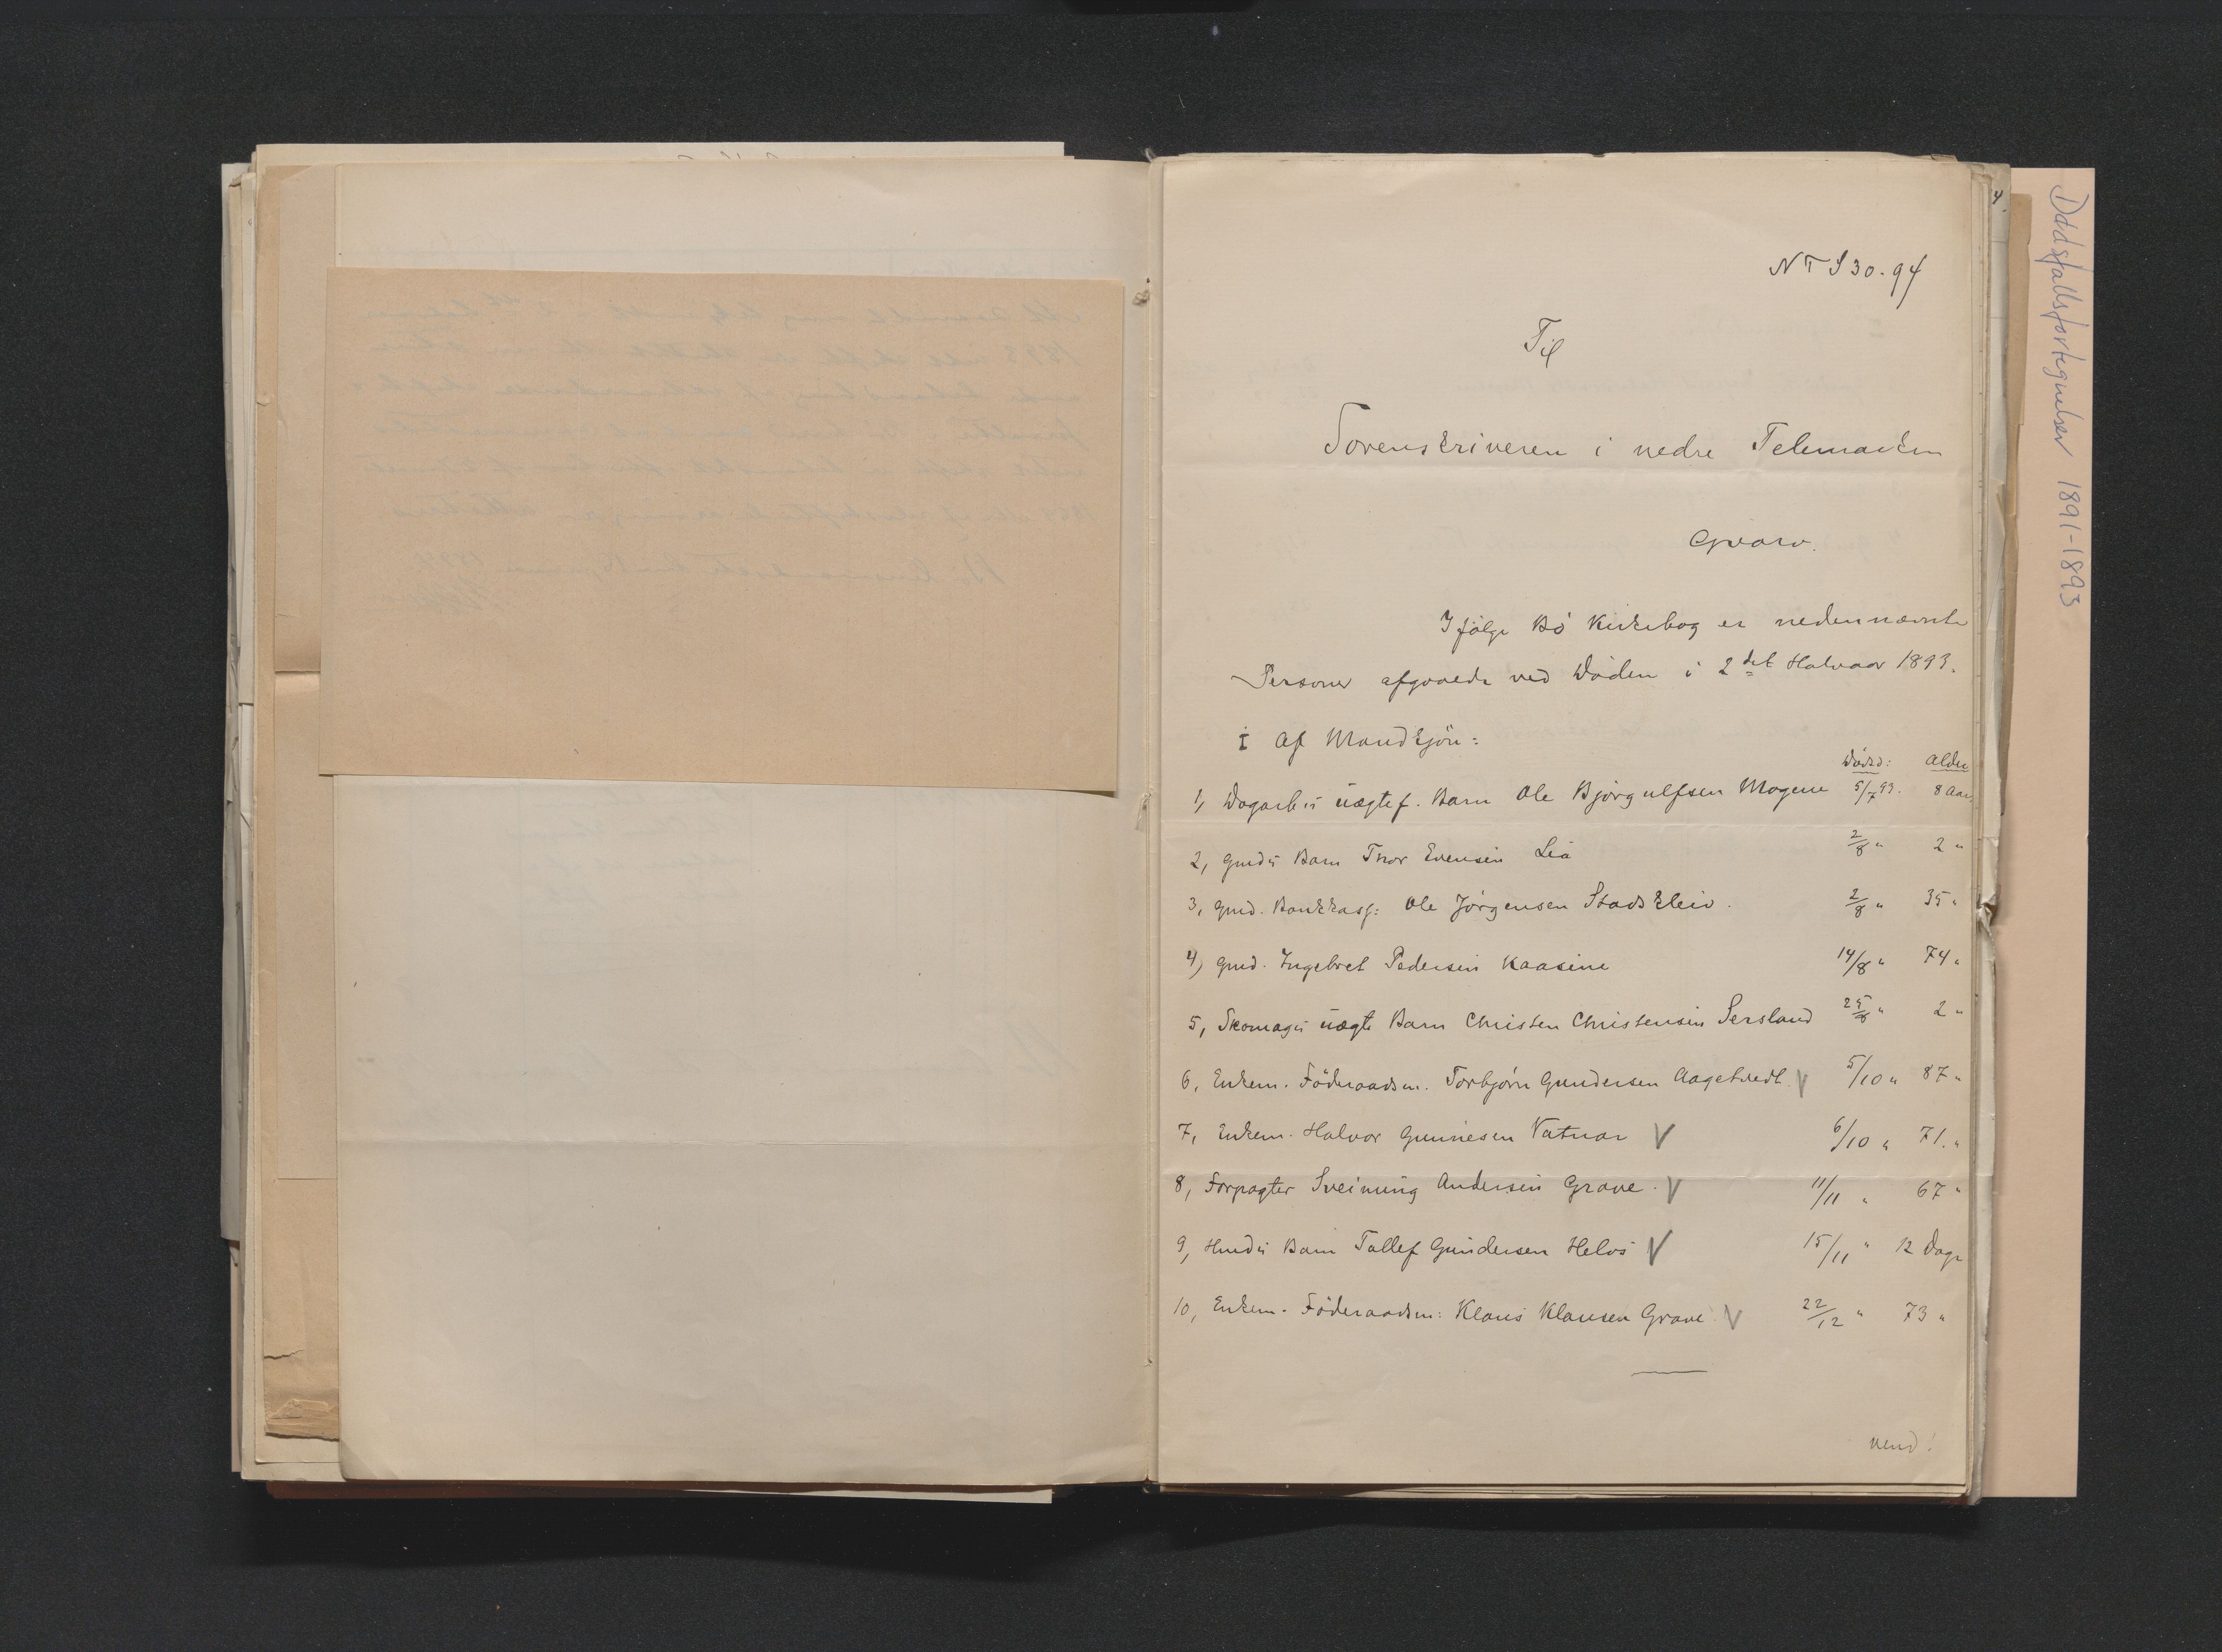 NTS 30-94
Til
Sorenskriveren i nedre Telemarken
Gvarv.
Ifølge Bö Kirkebog er nedennævnte
Personer afgaaede ved Döden i 2det Halvaar 1893.
I Af Mandkjön:
Dödsd: Alder
1, Dagarb's uægtef. Barn Ole Björgulfsen Mogene 5/7 93. 8 Aar.
2, Gmd's Barn Thor Evensen Lia 2/8 " 2 "
3, Gmd. Bankkass: Ole Jörgensen Stadskleiv. 2/8 " 35 "
4, Gmd. Ingebret Pedersen Kaasene 14/8 " 74 "
5, Skomag's uægte Barn Christen Christensen Sersland 25/8 " 2 "
6, Enkem. Föderaadsm. Torbjörn Gundersen Aagetvedt. V 5/10 " 87 "
7, Enkem. Halvor Gunnesen Vatnar V 6/10 " 71. "
8, Forpagter Sveinung Andersen Grave. V 11/11 " 67 "
9, Hmd's Barn Tallef Gundersen Helos V 15/11 " 12 Dage
10, Enkem. Föderaadsm: Klaus Klausen Grave. V 22/12 " 73 "
vend!
Dødsfallsfortegnelser 1891-1893